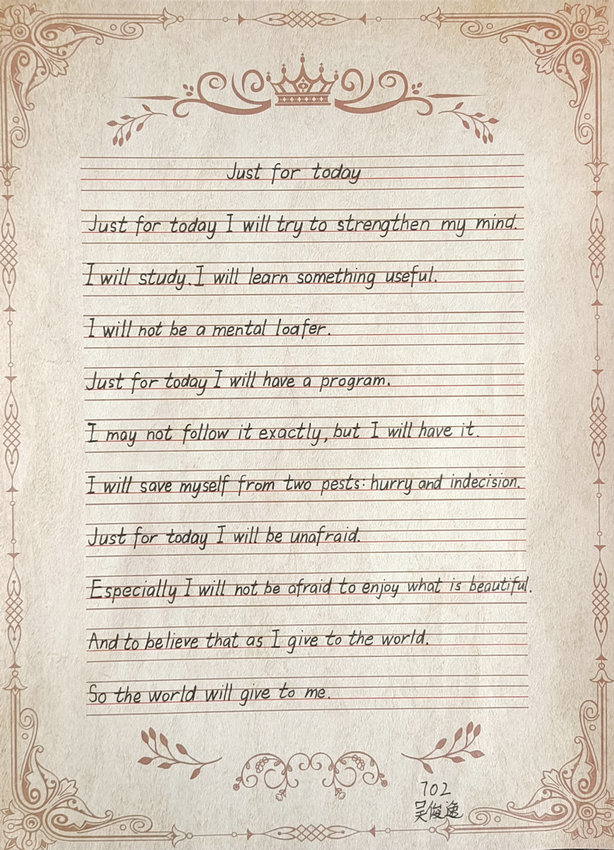 Just for today
Just for today I will try to strengthen my mind.
I will study. I will learn something useful.
I will not be a mental loafer.
Just for today I will have a program.
I may not follow it exactly, but I will have it.
I will save myself from two pests: hurry and indecision.
Just for today I will be unafraid.
Especially I will not be afraid to enjoy what is beautiful.
And to believe that as I give to the world.
So the world will give to me.
702
吴俊逸